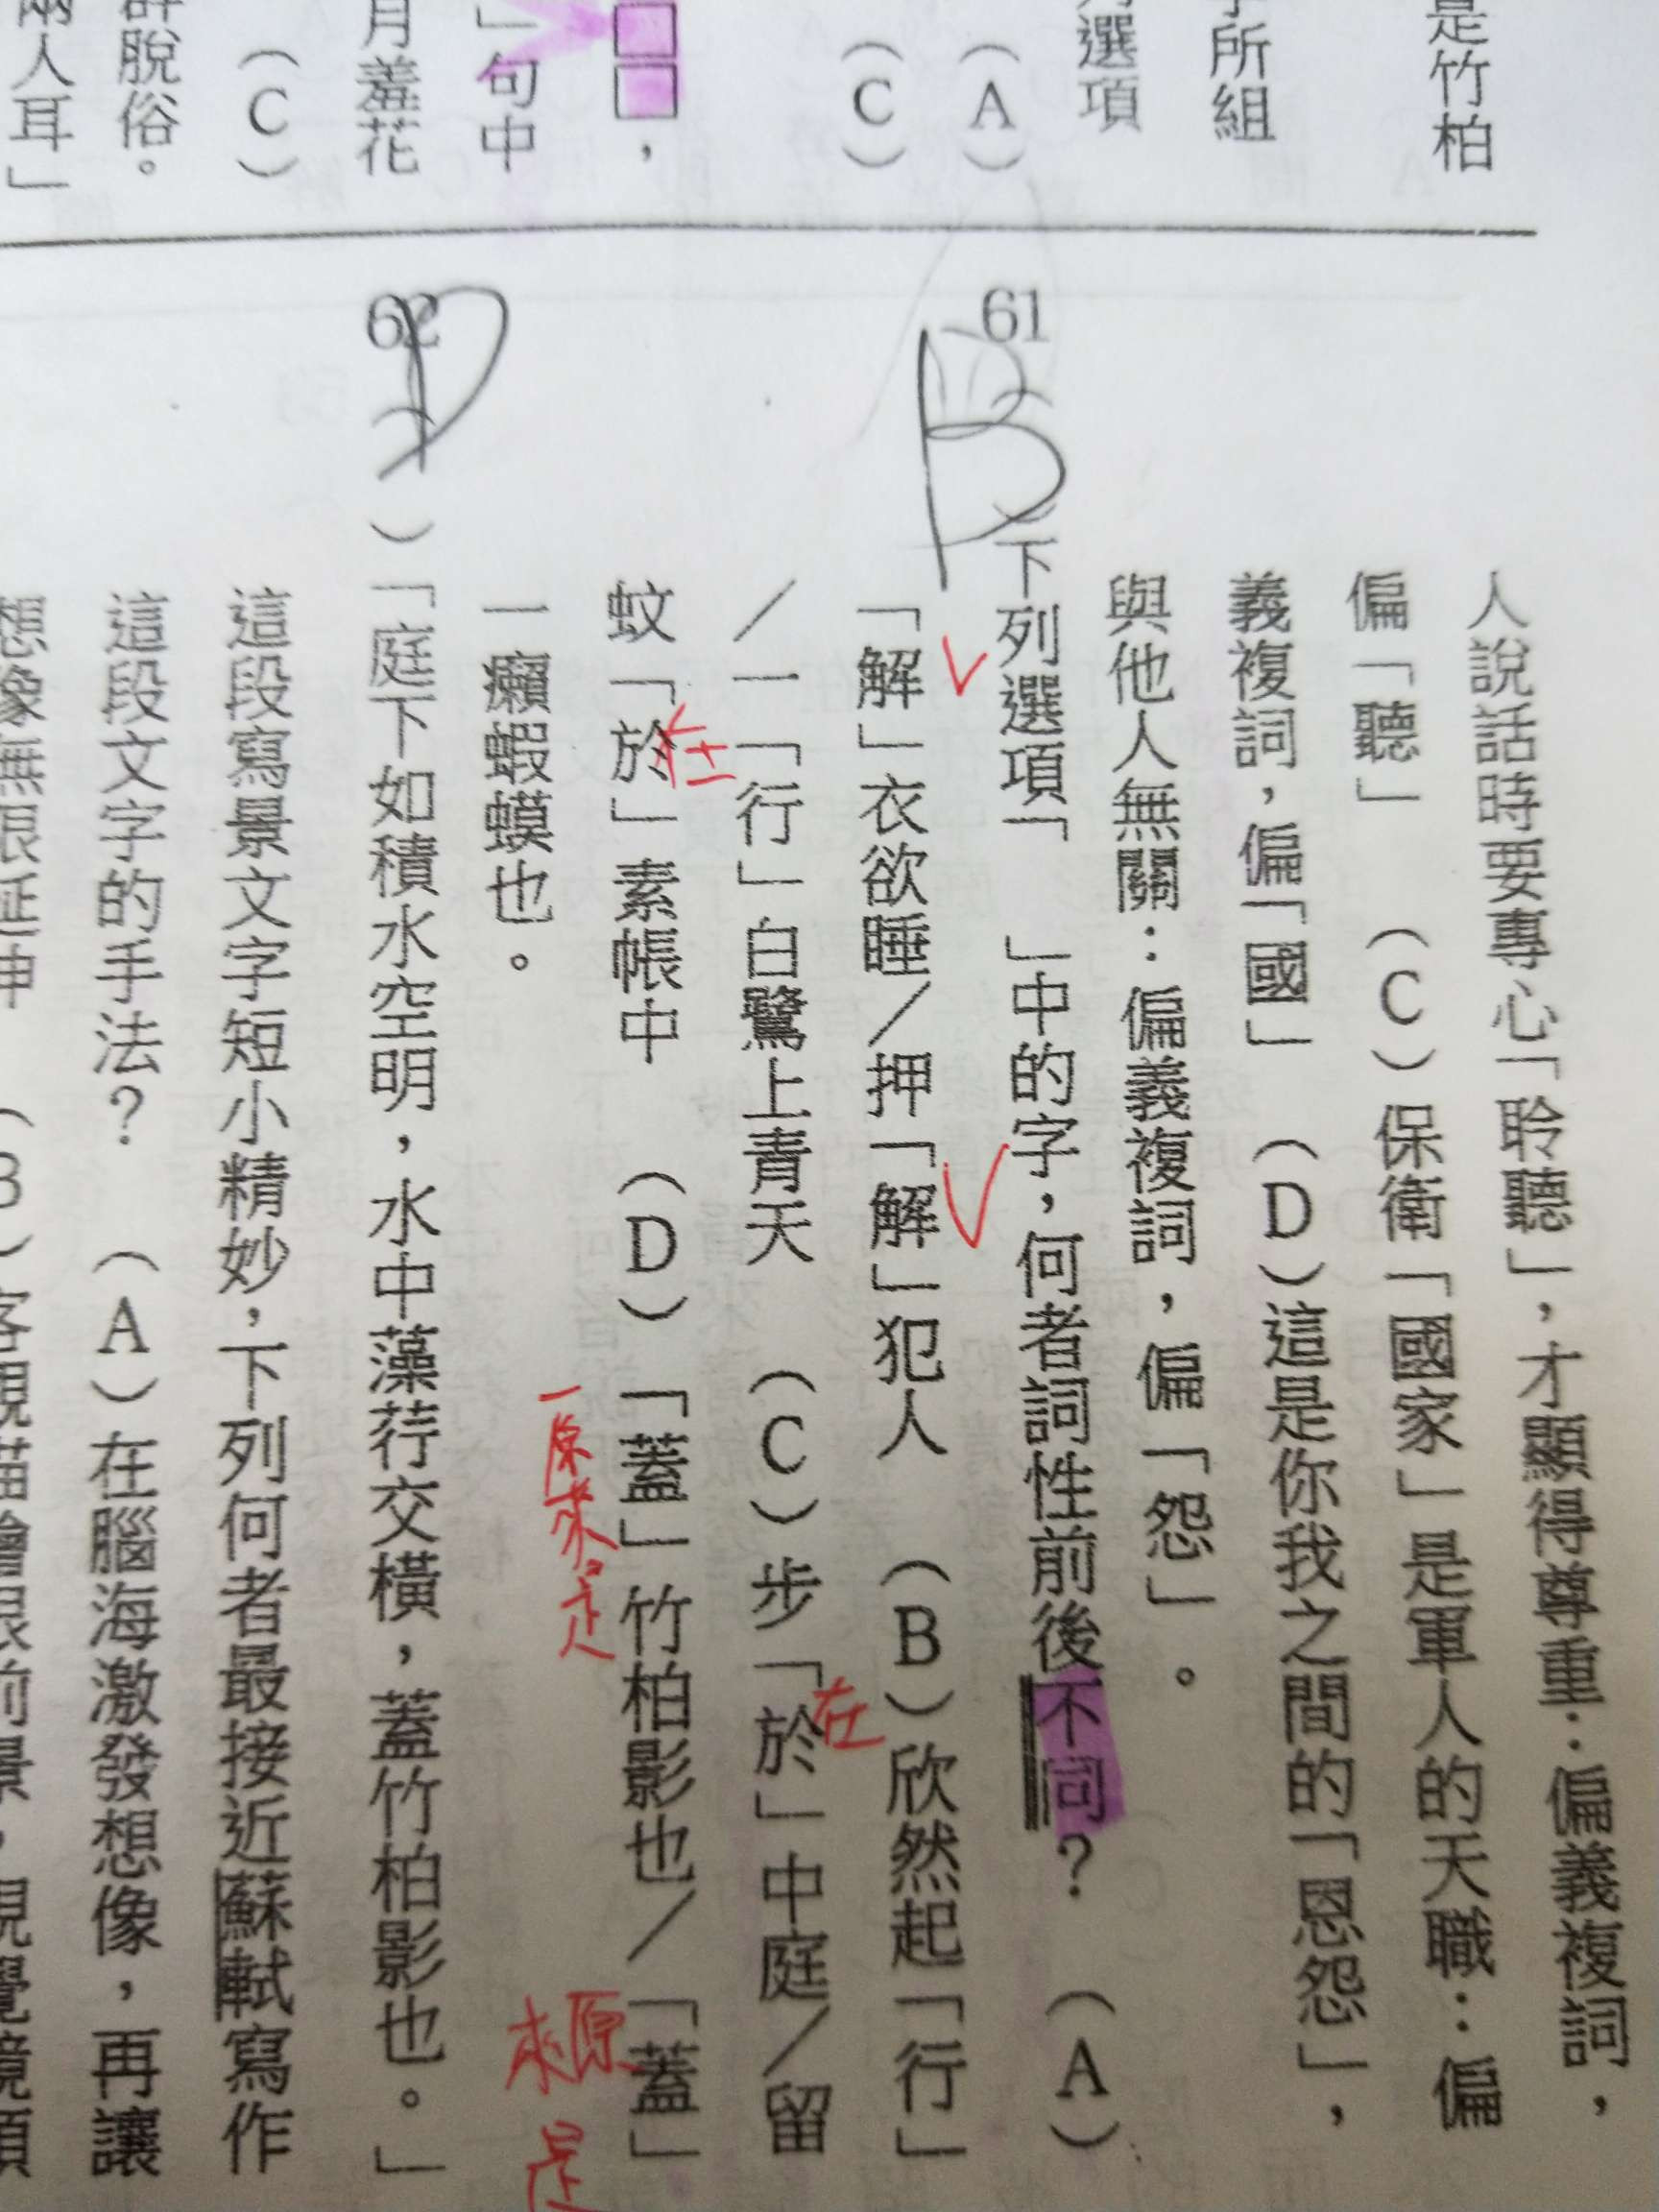 是竹柏
所組
選項
（A）
（C）
□□，
」句中
月羞花
（C）
群脫俗。
兩人耳」
人說話時要專心「聆聽」，才顯得尊重：偏義複詞，
偏「聽」　（C）保衛「國家」是軍人的天職：偏
義複詞，偏「國」　（D）這是你我之間的「恩怨」，
與他人無關：偏義複詞，偏「怨」。
61 B 下列選項「　」中的字，何者詞性前後不同？　（A）
「解」衣欲睡／押「解」犯人　（B）欣然起「行」
／一「行」白鷺上青天　（C）步「於」中庭／留
在
蚊「於」素帳中　（D）「蓋」竹柏影也／「蓋」
在
一癩蝦蟆也。
原來是
原來是
62 D ）「庭下如積水空明，水中藻荇交橫，蓋竹柏影也。」
這段寫景文字短小精妙，下列何者最接近蘇軾寫作
這段文字的手法？　（A）在腦海激發想像，再讓
想像無限延伸　（B）客觀描繪眼前景，視覺鏡頭